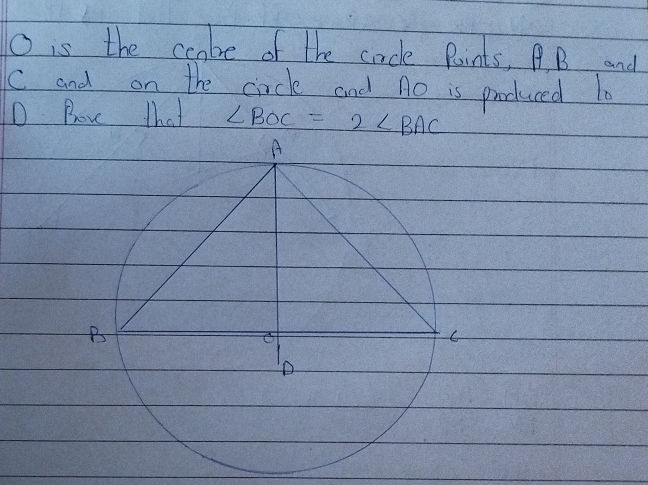 O is the centre of the circle Points, A, B and
C and on the circle and AO is produced to
D Prove that ∠BOC = 2 ∠BAC
A
B
O
C
D